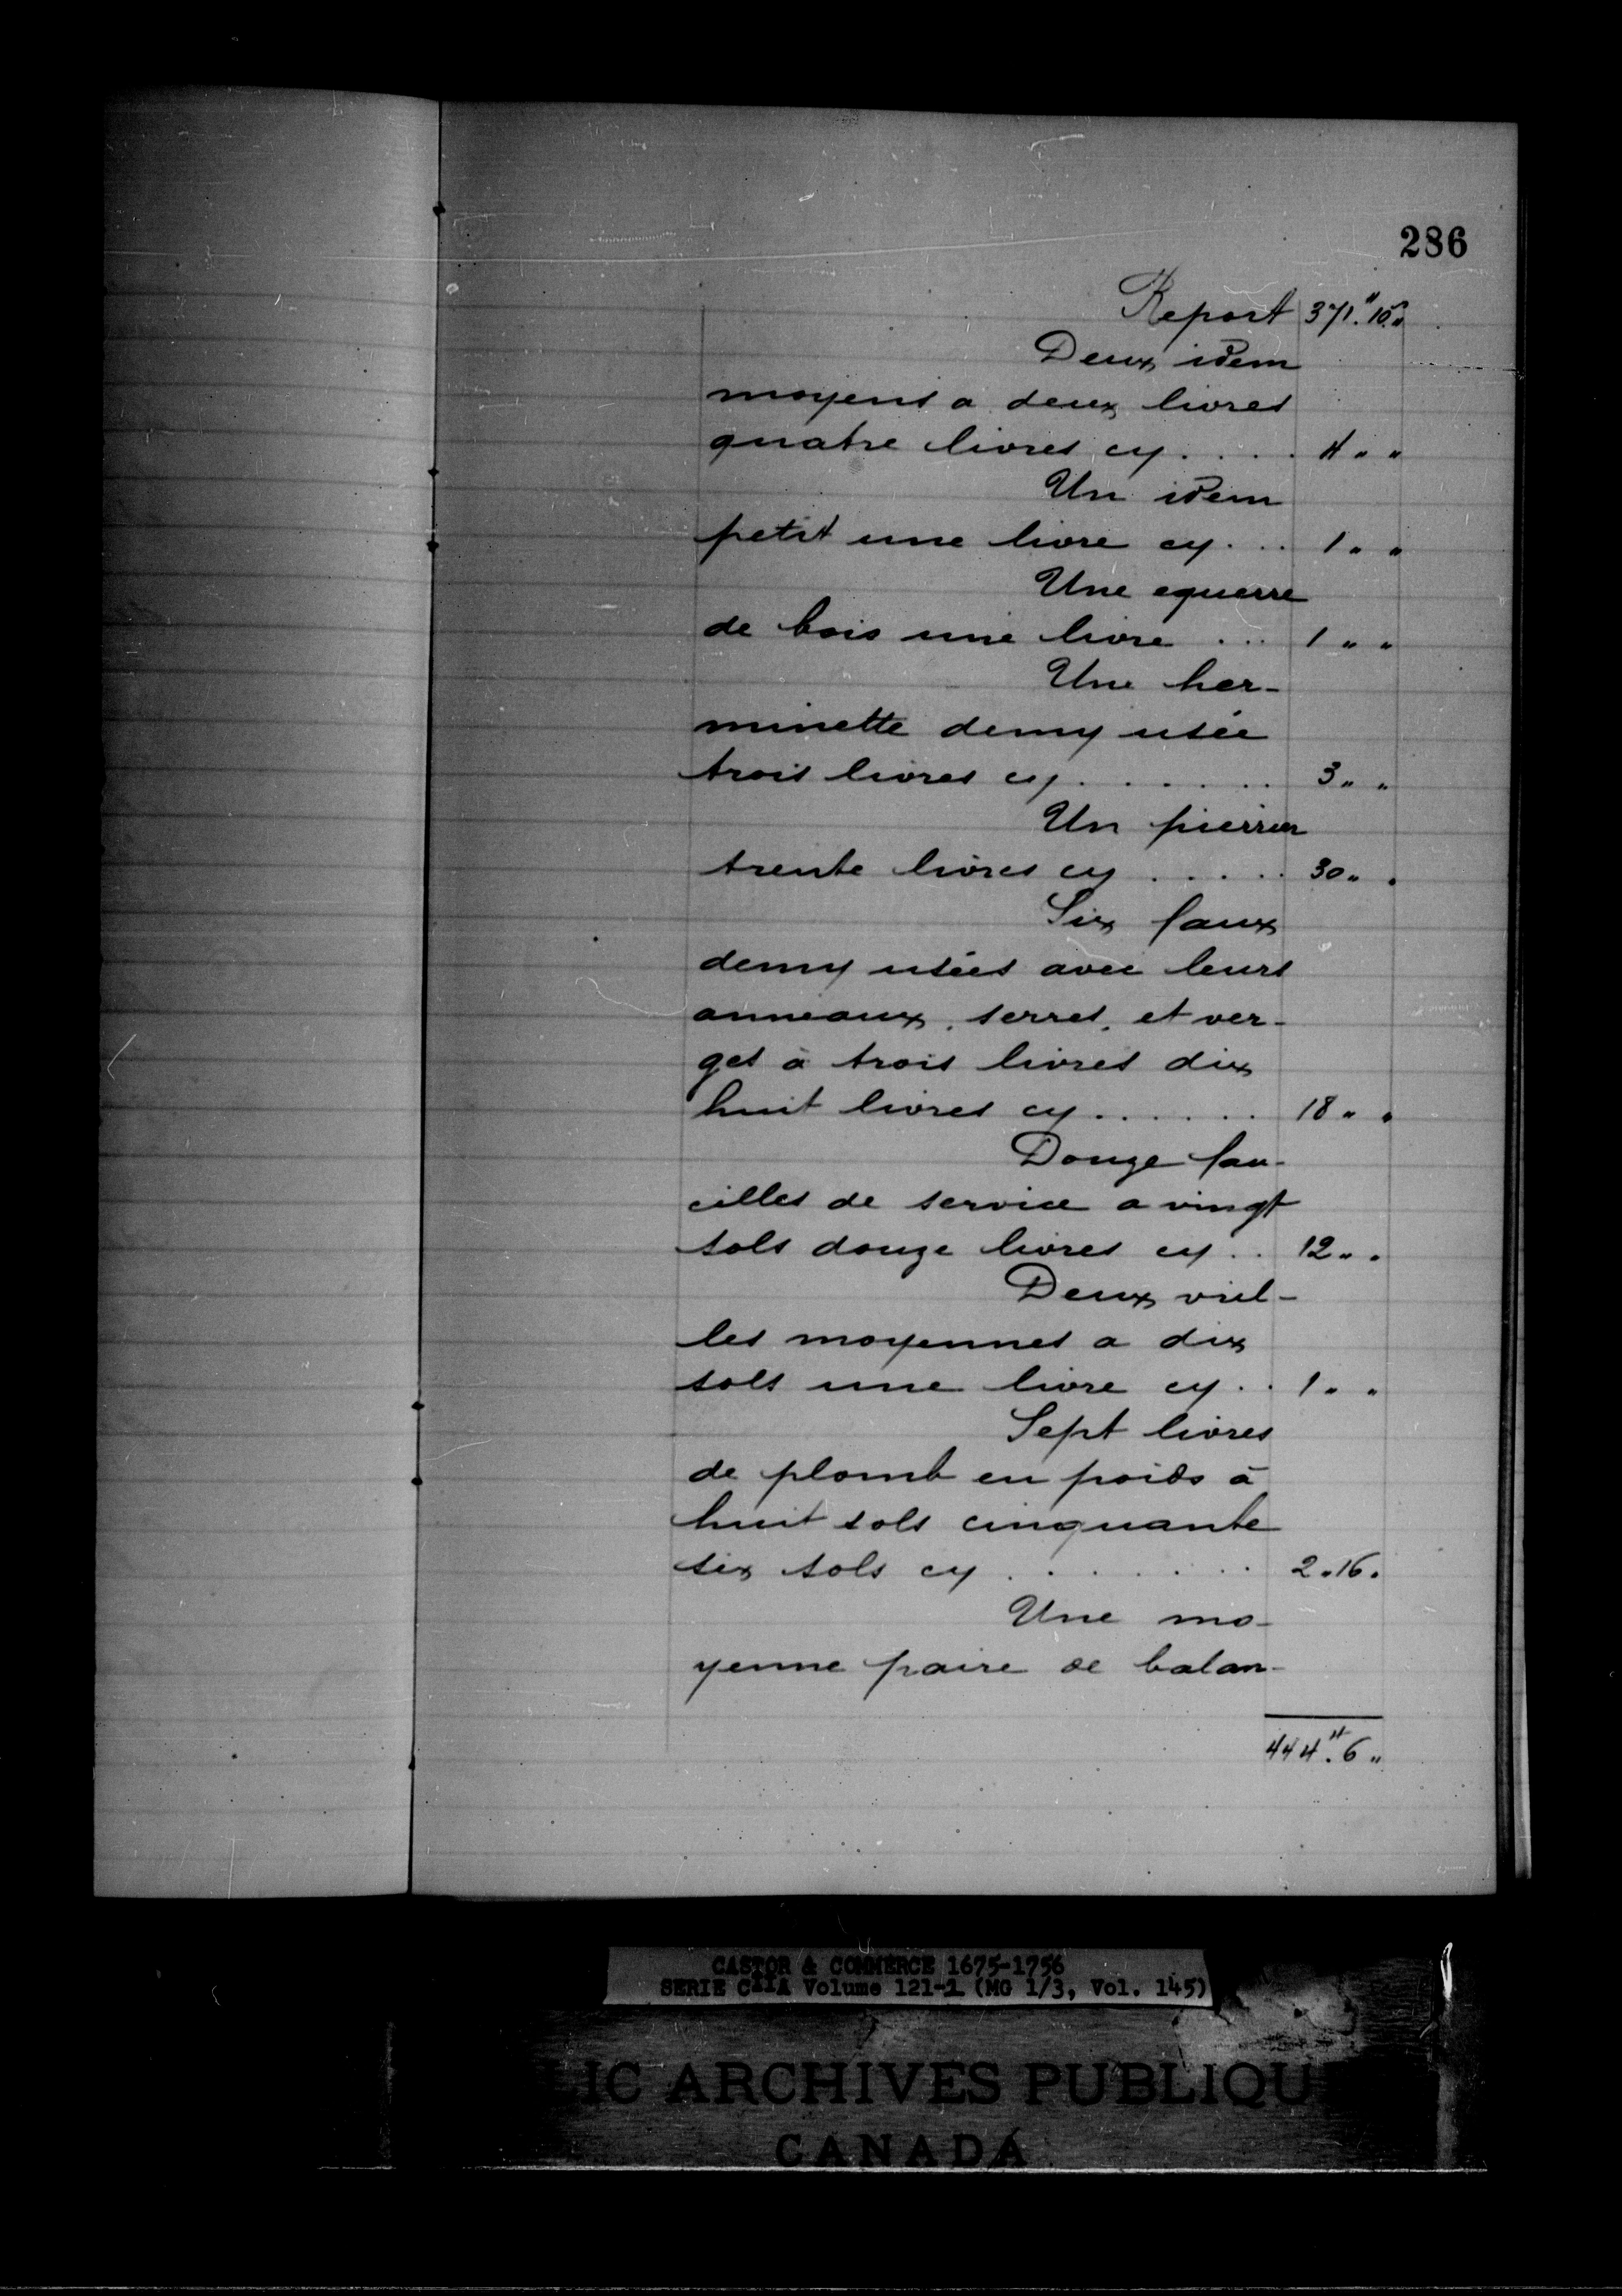 286
Report 371.# 10 "
Deux idem
moyens a deux livres
quatre livres cy . . . . 4 " "
Un idem
petit une livre cy . . . 1 " "
Une equerre
de bois une livre . . . 1 " "
Une her-
minette demy usée
trois livres cy . . . . . . 3 " "
Un pierrier
trente livres cy . . . . . 30 " "
Six faux
demy usées avec leurs
anneaux, serres, et ver-
ges à trois livres dix
huit livres cy . . . . . . 18 " "
Douze fau-
cilles de service a vingt
sols douze livres cy . . 12 " "
Deux viel-
les moyennes a dix
sols une livre cy . . 1 " "
Sept livres
de plomb en poids à
huit sols cinquante
six sols cy . . . . . . . 2 " 16 "
Une mo-
yenne paire de balan-
444.# 6 "
CASTOR & COMMERCE 1675-1756
SERIE C11A Volume 121-1 (MG 1/3, Vol. 145)
LIC ARCHIVES PUBLIQU
CANADA